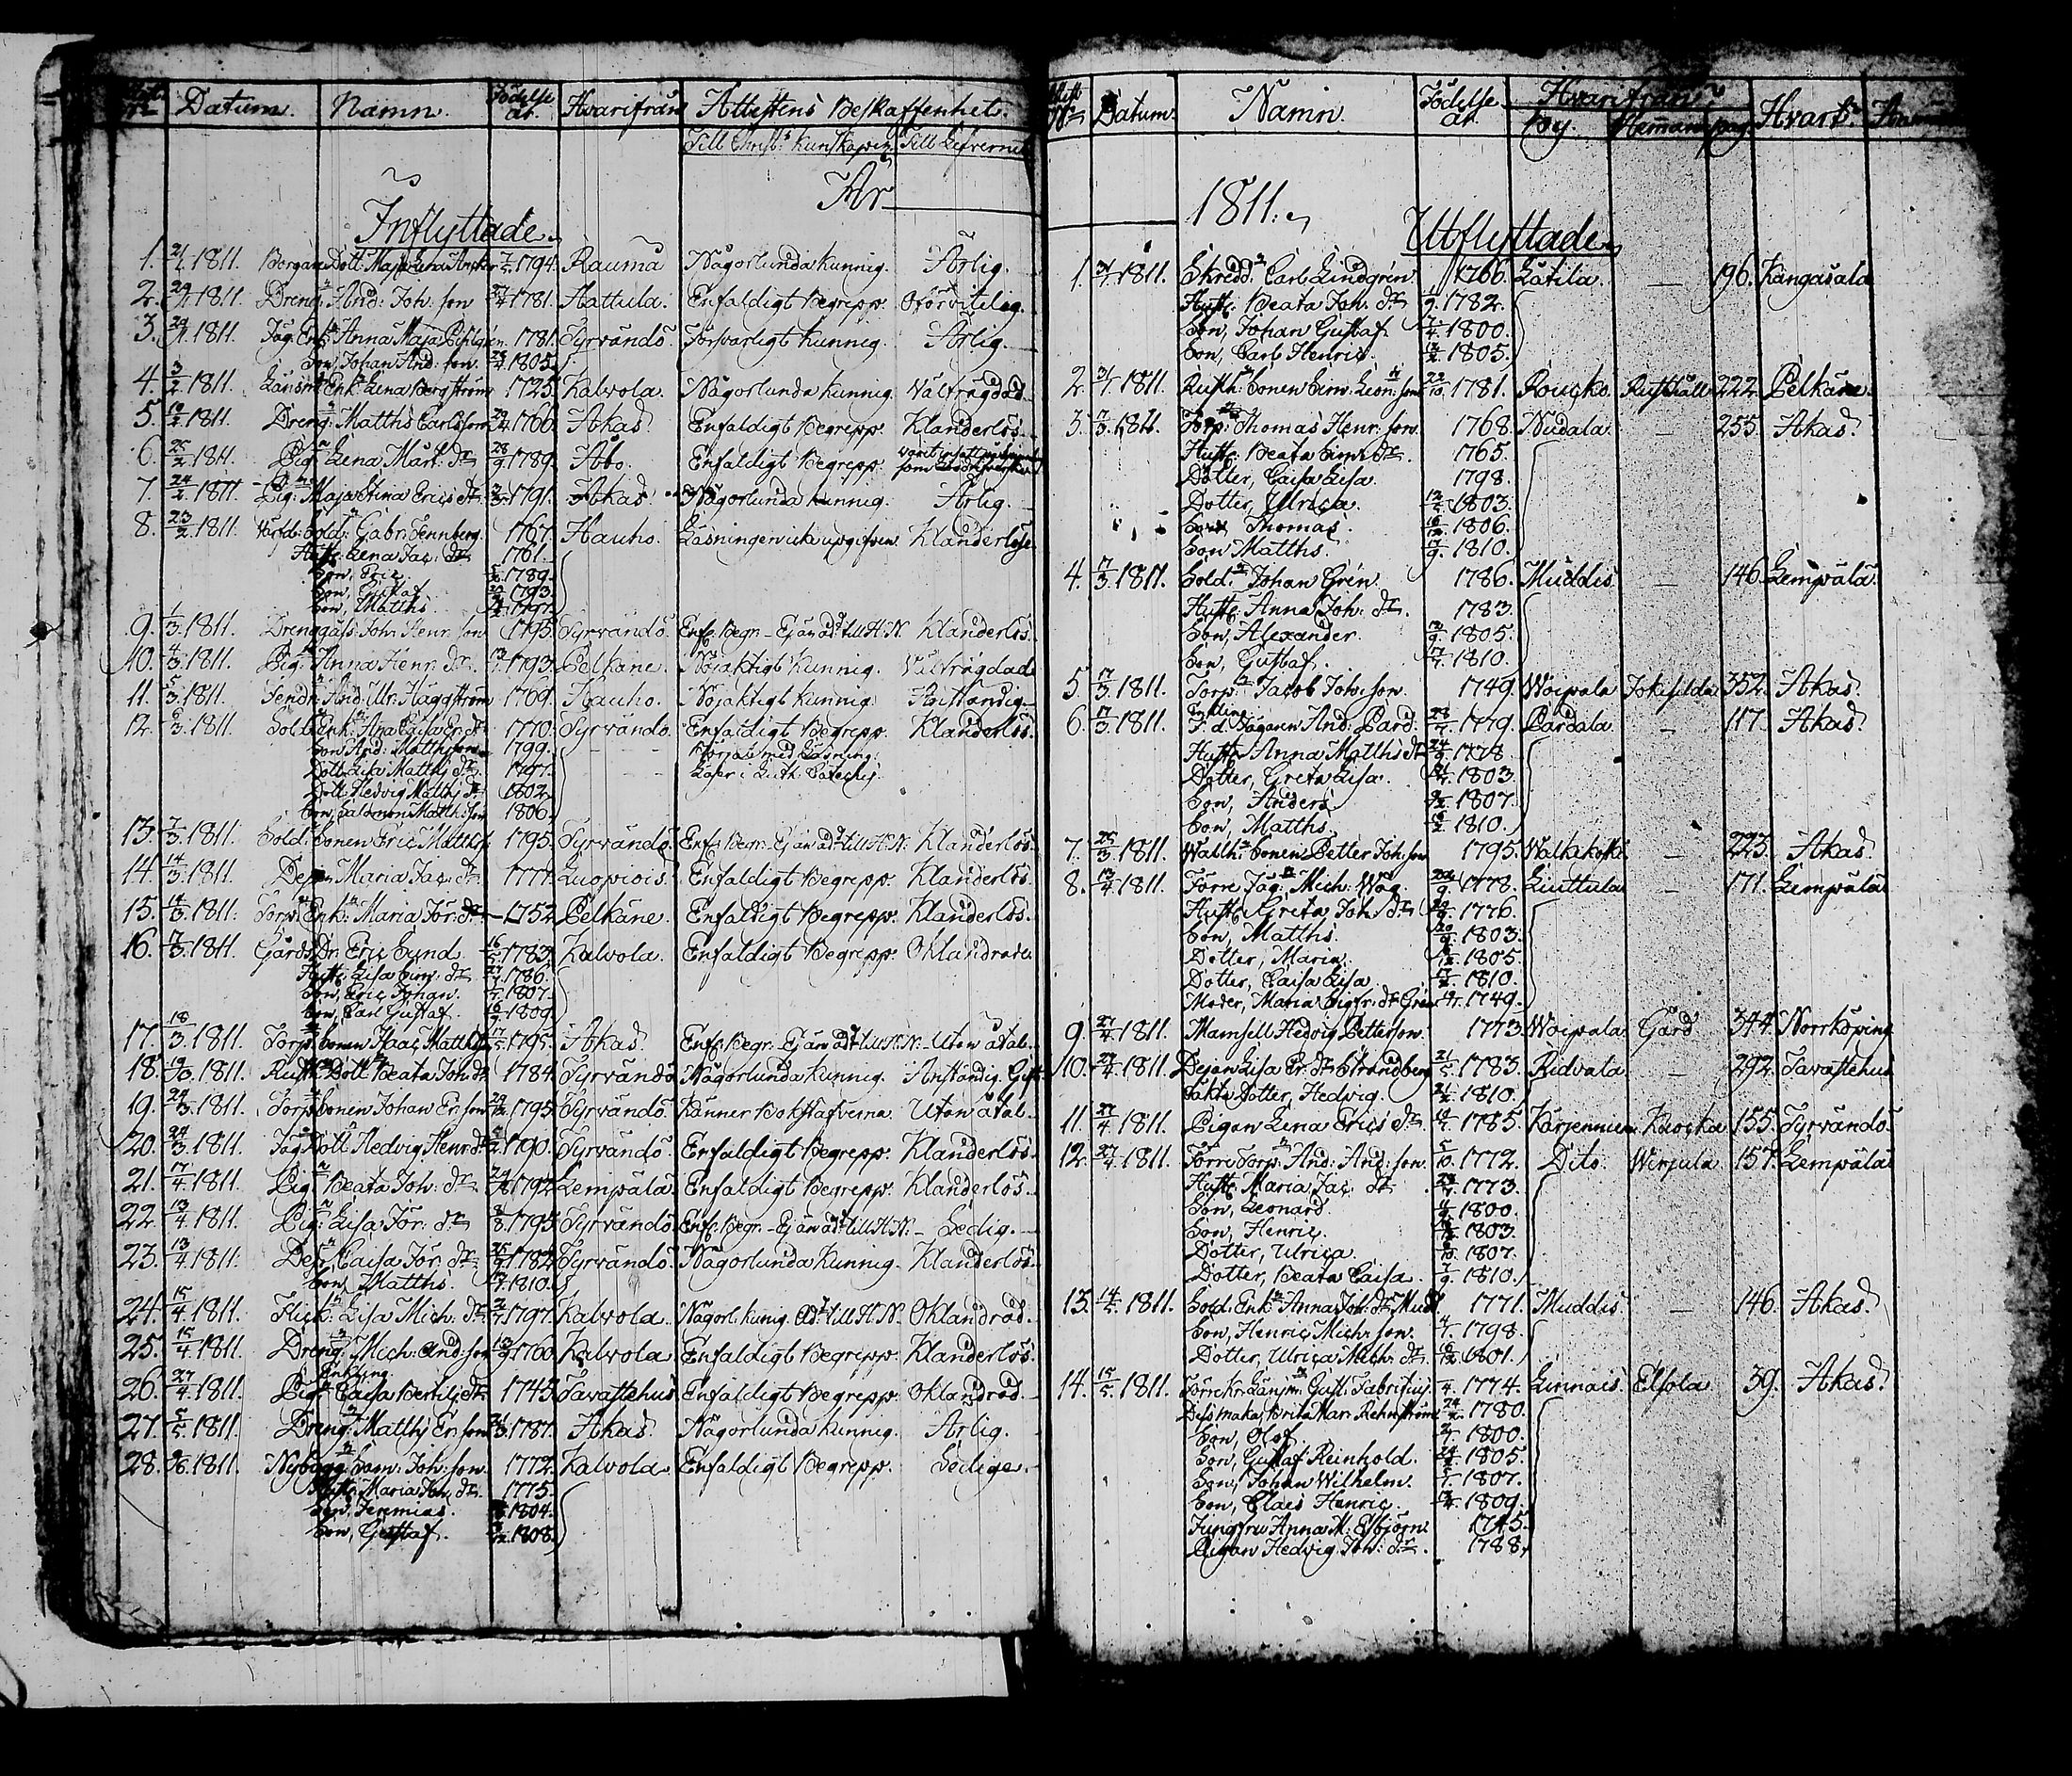 Datum. Namn. Födelse år. Hvarifrån Attestens Beskaffenhet.
Till Christ: Kunskapen. Till Lefvernet
År
Inflyttade
1. 21/1 1811. Borgare Dott: Maja Lena 1794. Rauma Någorlunda kunnig. Ärlig.
2. 1811. Dreng: And: Joh: son 1781. Hattula. Enfaldigt Begrepp. Oförvitelig.
3. 1811. Jäg. Enk: Anna Maja 1781. Tyrvändö. Försvarligt kunnig. Ärlig.
Son, Johan And: son. 1805.
4. 3/2 1811. Länsm: Enk: Lena Bergström 1725. Kalvola. Någorlunda kunnig. Välfrägdad.
5. 1811. Dreng: Matths Carlsson 1766. Akas. Enfaldigt Begrepp. Klanderlös.
6. 25/2 1811. Pig: Lena Mårt: dr 28/9 1789. Åbo. Enfaldigt Begrepp.
7. 24/2 1811. Pig: Maja Stina Erics dr 1791. Akas. Någorlunda kunnig. Ärlig.
8. 23/2 1811. Sold: Gabr: Tennberg. 1767. Hauho. Läsningen icke upgifven Klanderlöse
Hust: Lena Jac: dr 1761.
Son, Eric. 1789.
Son, Gustaf 1793.
Son, Matths. 1797.
9. 1/3 1811. Drenggåss: Joh: Henr: son 1795. Tyrvändö. Enf: Begr:- Ej än adt till H.N. Klanderlös.
10. 4/3 1811. Pig: Anna Henr: dr 1793. Pelkäne. Nöjaktigt kunnig. Välfrägdad
11. 5/3 1811. And: Ulr: Häggström 1769. Hauho. Nöjaktigt kunnig.
12. 6/3 1811. Sold: Enk: Ana Caisa Er: dr 1770. Tyrvändö. Enfaldigt Begrepp. Klanderlös.
Son And: Matths son 1799.
Dott: Lisa Matths dr. 1797.
Dott: Hedvig Matths dr 1802.
Son, Salomon Matth: son 1806.
13. 7/3 1811. Sold: Sonen Eric Matths 1795. Tyrvändö. Enf: Begr:- Ej än adt till H.N. Klanderlös.
14. 14/3 1811. Maria Jac: dr. 1777. Luopiois. Enfaldigt Begrepp. Klanderlös.
15. 14/3 1811. Torp: Enk: Maria Jör: dr 1752. Pelkäne. Enfaldigt Begrepp. Klanderlös.
16. 17/3 1811. Gårds Dr: Eric Sund. 16/5 1783. Kalvola. Enfaldigt Begrepp. Oklandrade.
Hust: Lisa Sim: dr 1786.
Son, Eric Johan. 1807.
Son, Carl Gustaf. 1809.
17. 18/3 1811. Torp: Sonen Isaac Matths 1795. Akas. Enf: Begr:- Ej än adt till H.N. Utan åtal.
18. 19/3 1811. Rusth: Dott: Beata Joh: dr 1784. Tyrvändö Någorlunda kunnig. Anständig. Gift
19. 24/3 1811. Torp: Sonen Johan Er: son 1795. Tyrvändö. Känner Bokstäfverna. Utan åtal.
20. 24/3 1811. Jäg: Dott: Hedvig Henr: dr 1790. Tyrvändö. Enfaldigt Begrepp. Klanderlös.
21. 17/4 1811. Pig: Beata Joh: dr 1792. Lempälä. Enfaldigt Begrepp. Klanderlös.
22. 13/4 1811. Pig: Lisa Jör: dr 1795. Tyrvändö. Enf: Begr:- Ej än adt till H.N:- Sedig.
23. 13/4 1811. Caisa Jör: dr 25/9 1782. Tyrvändö. Någorlunda kunnig. Klanderlös.
Son, Matths. 1810.
24. 15/4 1811. Flick: Lisa Mich: dr 1797. Kalvola. Någorl: kunig. Adt: till H.N. Oklandrad.
25. 15/4 1811. Dreng: Mich: And: son 1760. Kalvola Enfaldigt Begrepp. Klanderlös.
Enkling
26. 27/4 1811. Pig: Caisa dr. 1743. Tavastehus Enfaldigt Begrepp. Oklandrad.
27. 5/5 1811. Dreng: Matths Er: son 1787. Akas. Någorlunda kunnig. Ärlig.
28. 1811. Nybygg: Sam: Joh: son. 1772. Kalvola. Enfaldigt Begrepp. Sedige.
Hust: Maria Joh: dr. 1775.
Son, Jeremias. 1804.
Son, Gustaf. 1808.
Datum. Namn. Födelse år. Hvarifrån Hvart.
By. Hemman pag.
1811.
Utflyttade
1. 1811. Skredd: Carl Lindgrén 1766. Lätila. — 196. Kangasala
Hust: Beata Joh: dr 1782.
Son, Johan Gustaf. 1800.
Son, Carl Henric. 1805.
2. 1811. Rusth: Sonen Sim: Leon: son 22/10 1781. Roucko Rusthåll 222. Pelkäne.
3. 1811. Torp: Thomas Henr: son. 1768. Nudala. — 255. Akas.
Hust: Beata Sim: dr. 1765.
Dotter, Caisa Lisa. 1798.
Dotter, Ulrica. 1803.
Son Thomas. 1806.
Son Matths. 1810.
4. 1811. Sold: Johan Grén. 1786. Muddis. — 146. Lempälä.
Hust: Anna Joh: dr. 1783.
Son, Alexander. 1805.
Son, Gustaf. 1810.
5. 17/3 1811. Torp: Jacob Joh: son. 1749. Woipala Jokisilda 352. Akas.
Enkling
6. 17/3 1811. F. d. Jägaren And: Pard: 1779. Pardala. — 117. Akas.
Hust: Anna Matths dr 1778.
Dotter, Greta Lisa. 1803.
Son, Anders. 1807.
Son, Matths. 1810.
7. 25/3 1811. Wallh: Sonen Petter Joh: son 1795. Walkikoski — 223. Akas.
8. 13/4 1811. Förre Jäg: Mich: Wåg. 1778. Liuttula — 171. Lempälä
Hust: Greta Joh: dr 1776.
Son, Matths. 1803.
Dotter, Maria. 1805.
Dotter, Caisa Lisa. 1810.
Moder, Maria Sigfr: dr Grén 1749.
9. 27/4 1811. Mamsell Hedvig Petterson. 1773. Woipala Gård 344. Norrköping
10. 27/4 1811. Pejan Lisa Er: dr Strandberg 1783. Ridvala — 292. Tavastehus
Oäkta Dotter, Hedvig. 1810.
11. 27/4 1811. Pigan Lena Erics dr. 1785. Kärjenniemi Kuocka 155. Tyrvändö.
12. 27/4 1811. Förre Torp: And: And: son. 5/10 1772. Dito. Wirjula 157. Lempälä
Hust: Maria Jac: dr 1773.
Son, Leonard. 1800.
Son, Henric. 1803.
Dotter, Ulrica. 1807.
Dotter, Beata Caisa. 7/9 1810.
13. 14/5 1811. Sold: Enk: Anna Joh: dr Mudd 1771. Muddis. — 146. Akas.
Son, Henric Mich: son. 1798.
Dotter, Ulrica Mich: dr. 1801.
14. 15/5 1811. Förre Kr: Länsm: Gust: Fabritius. 1774. Linnais. Elsola 39. Akas.
Des maka, Brita Mar: Rehnström 1780.
Son, Olof. 1800.
Son, Gustaf Reinhold. 1805.
Son, Johan Wilhelm. 1807.
Son, Claes Henric. 1809.
Jungfru Anna M: Esbjörn 1745.
Pigan Hedvig Joh: dr. 1788.